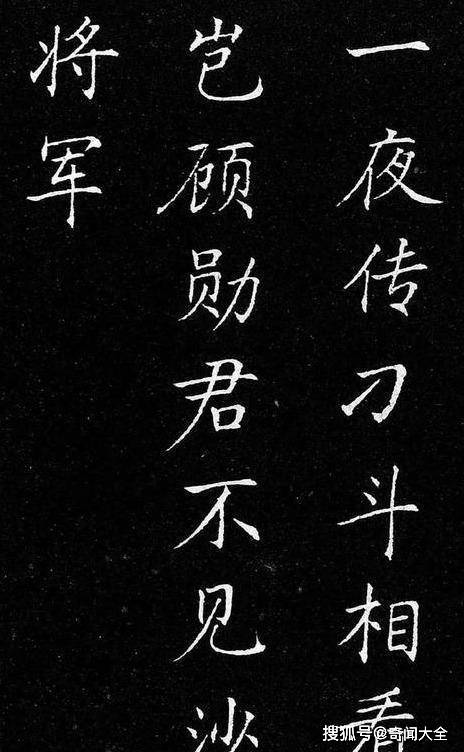 一夜传刁斗相看
岂顾勋君不见沙
将军
搜狐号@奇闻大全